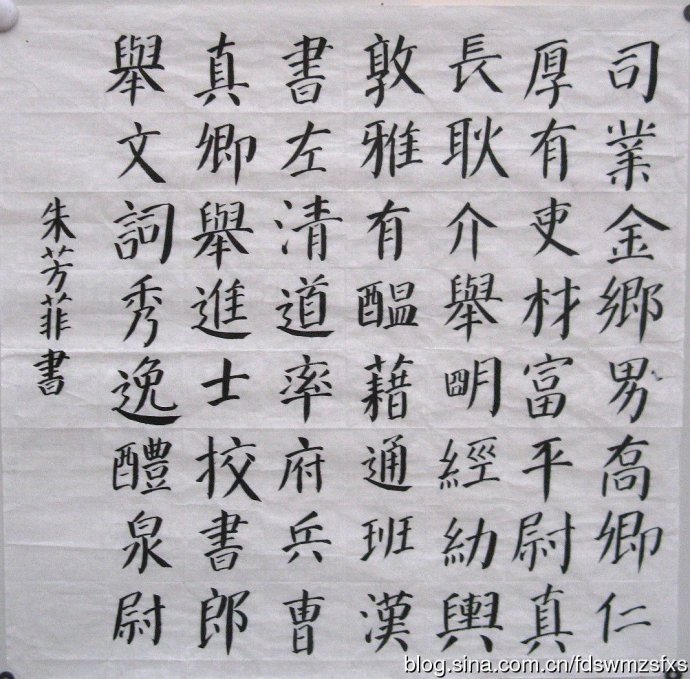 司業金鄉男喬卿仁
厚有吏材富平尉真
長耿介舉明經幼輿
敦雅有醞藉通班漢
書左清道率府兵曹
真卿舉進士挍書郎
舉文詞秀逸醴泉尉
朱芳菲書
blog.sina.com.cn/fdswmzsfxs